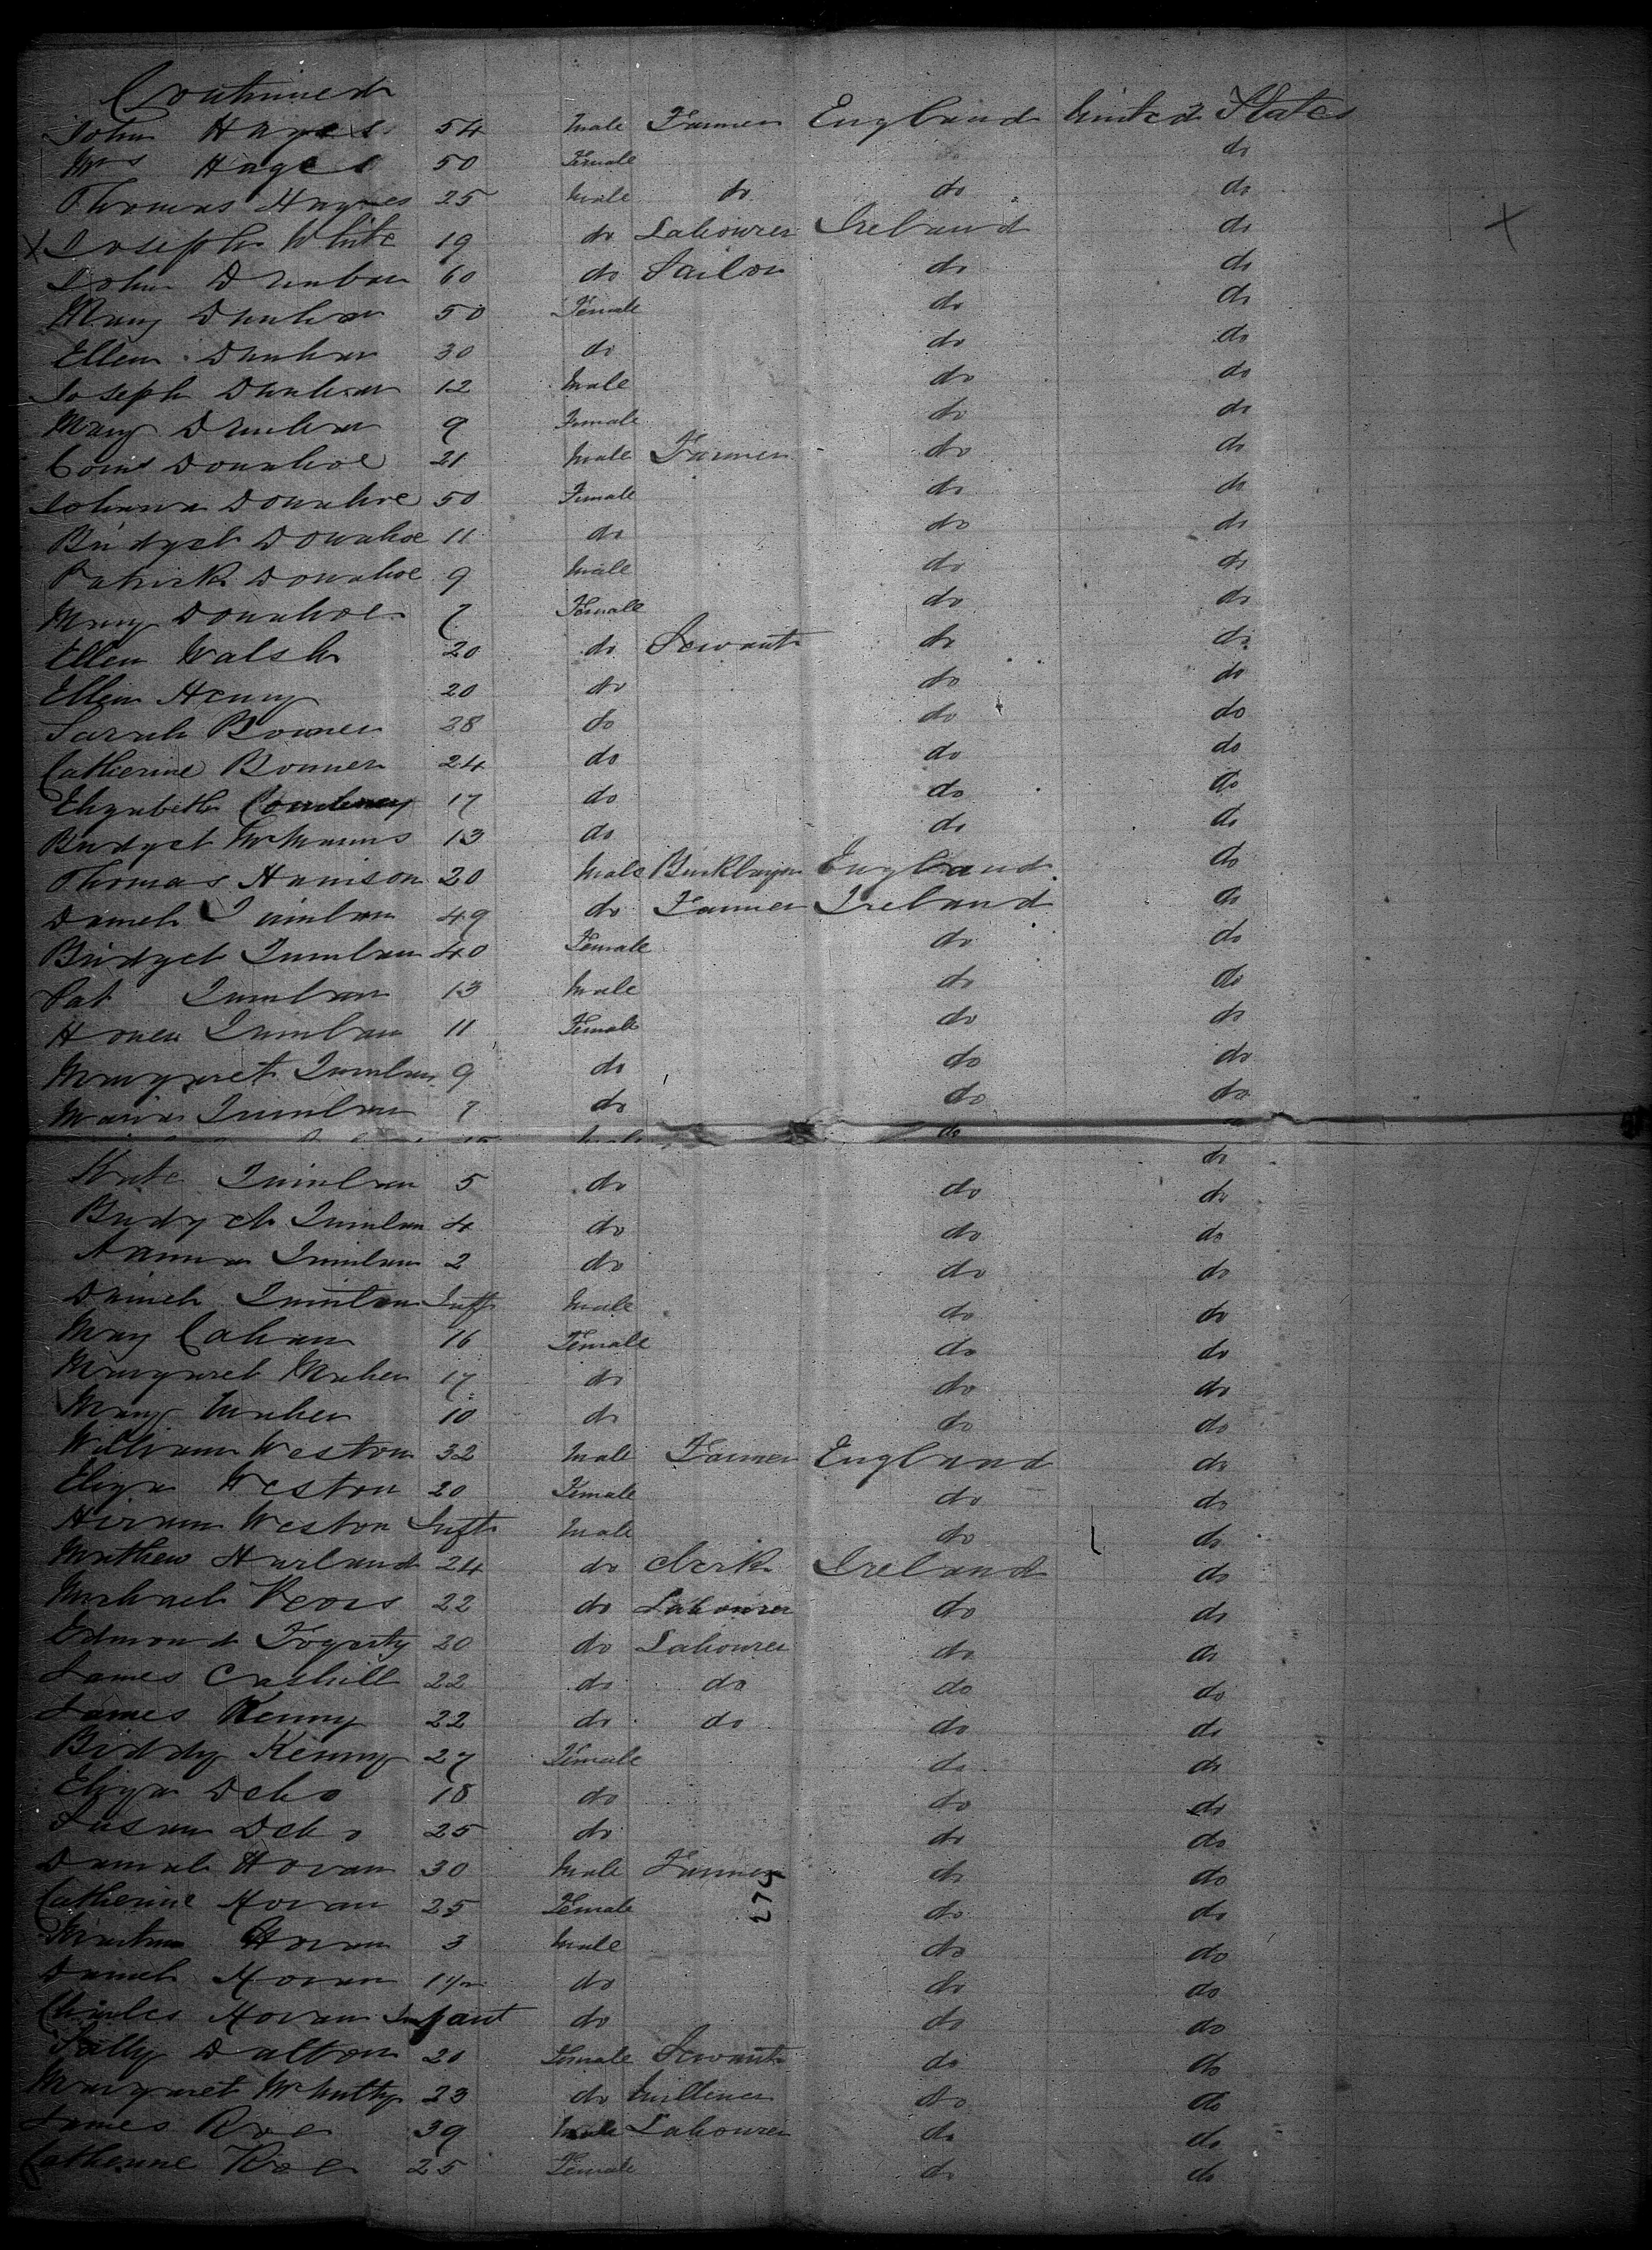 Continued
John Hayes 54 Male Farmer England United States
Mrs Hayes 50 Female do
Thomas Haynes 25 Male do do do
X Joseph White 19 do Labourer Ireland do X
John 60 do Sailor do do
Mary 50 Female do do
Ellen 30 do do do
Joseph 12 Male do do
Mary 9 Female do do
Donahoe 21 Male Farmer do do
Johanna Donahoe 50 Female do do
Bridget Donahoe 11 do do do
Patrick Donahoe 9 Male do do
Mary Donahoe 7 Female do do
Ellen Walsh 20 do Servant do do
Ellen Henry 20 do do do
Sarah Bonner 28 do do do
Catherine Bonner 24 do do do
Elizabeth 17 do do do
Bridget McManus 13 do do do
Thomas Harrison 20 Male Bricklayer England do
Daniel Quinlan 49 do Farmer Ireland do
Bridget Quinlan 40 Female do do
Pat Quinlan 13 Male do do
Quinlan 11 Female do do
Margaret Quinlan 9 do do do
Maria Quinlan 7 do do do
Male do
Kate Quinlan 5 do do do
Bridget Quinlan 4 do do do
Quinlan 2 do do do
Daniel Quinlan Inft Male do do
Mary Cahan 16 Female do do
Margaret Maher 17 do do do
Mary Maher 10 do do do
William Weston 32 Male Farmer England do
Eliza Weston 20 Female do do
Hiram Weston Inft Male do do
Mathew Harland 24 do Clerk Ireland do
Michael 22 do Labourer do do
Edmond Fogarty 20 do Labourer do do
James 22 do do do do
James Kenny 22 do do do do
Biddy Kenny 27 Female do do
Eliza 18 do do do
Susan 25 do do do
Daniel Horan 30 Male Farmer do do
Catherine Horan 25 Female do do
Martin Horan 3 Male do do
Daniel Horan 1½ do do do
Charles Horan Infant do do do
Sally Dalton 20 Female Servant do do
Margaret McNulty 23 do Milliner do do
James Roe 39 Male Labourer do do
Catherine Roe 25 Female do do